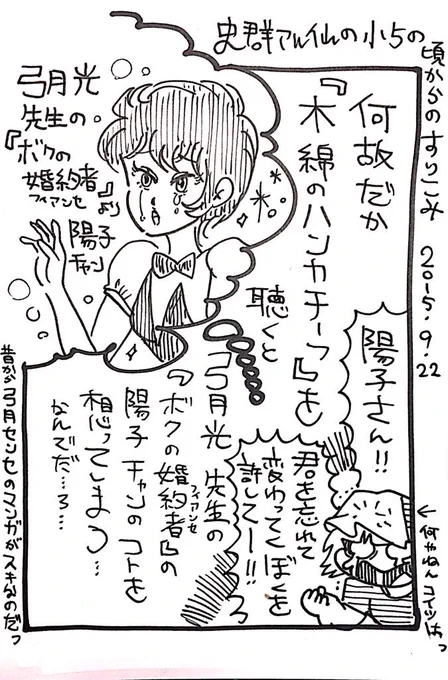 史群アル仙の小5の
頃からのすりこみ 2015.9.22
何故だか
『木綿のハンカチーフ』を
聴くと
弓月光
先生の
『ボクの
婚約者』より
フィアンセ
陽子
チャン
陽子さん!!
君を忘れて
変わってくぼくを
許してー!!
弓月光 先生の
『ボクの婚約者』の
フィアンセ
陽子チャンのコトを
想ってしまう…
なんでだ…ろ…
←何やねんコイツはっ
昔から弓月センセのマンガがスキなのだっ